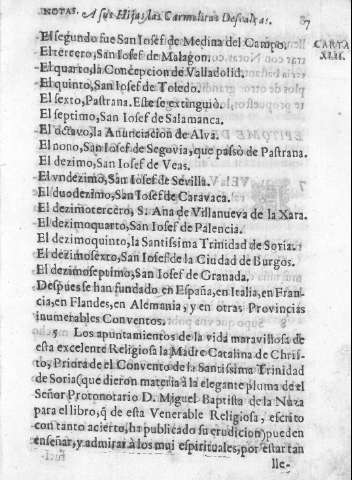 NOTAS. A sus Hijas las Carmelitas Descalças. 87
CARTA
XLII.
El segundo fue San Iosef de Medina del Campo.
El tercero, San Iosef de Malagon.
El quarto, la Concepcion de Valladolid.
El quinto, San Iosef de Toledo.
El sexto, Pastrana. Este se extinguiò.
El septimo, San Iosef de Salamanca.
El octavo, la Anunciacion de Alva.
El nono, San Iosef de Segovia, que passò de Pastrana.
El dezimo, San Iosef de Veas.
El vndezimo, San Iosef de Sevilla.
El duodezimo, San Iosef de Caravaca.
El dezimotercero, S. Ana de Villanueva de la Xara.
El dezimoquarto, San Iosef de Palencia.
El dezimoquinto, la Santissima Trinidad de Soria.
El dezimosexto, San Iosef de la Ciudad de Burgos.
El dezimoseptimo, San Iosef de Granada.
Despues se han fundado en España, en Italia, en Fran-
cia, en Flandes, en Alemania, y en otras Provincias
inumerables Conventos.
5 Los apuntamientos de la vida maravillosa de
esta excelente Religiosa la Madre Catalina de Chris-
to, Priora de el Convento de la Santissima Trinidad
de Soria (que dieron materia à la elegante pluma de el
Señor Protonotario D. Miguel Baptista de la Nuza
para el libro, q̃ de esta Venerable Religiosa, escrito
con tanto acierto, ha publicado su erudicion) pueden
enseñar, y admirar à los mui espirituales, por estar tan
lle-